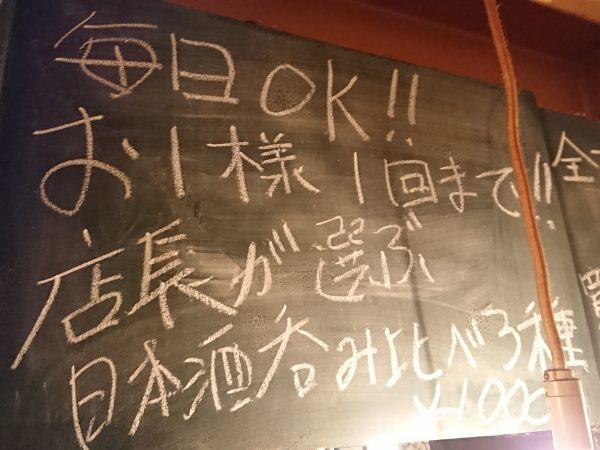 毎日OK!!
お1様1回まで!!
店長が選ぶ
日本酒呑み比べ3種
¥1000
全